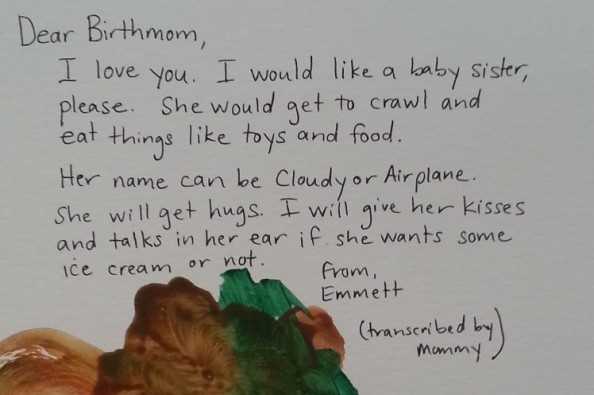 Dear Birthmom,
I love you. I would like a baby sister,
please. She would get to crawl and
eat things like toys and food.
Her name can be Cloudy or Airplane.
She will get hugs. I will give her kisses
and talks in her ear if she wants some
ice cream or not.
From,
Emmett
(transcribed by
Mommy)